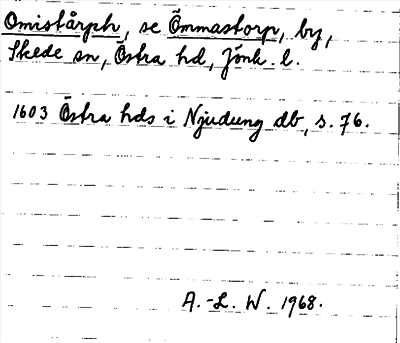 Omistårph, se Ömmastorp, by,
Skede sn, Östra hd, Jönk. l.
1603 Östra hds i Njudung db, s. 76.
A.-L. W. 1968.